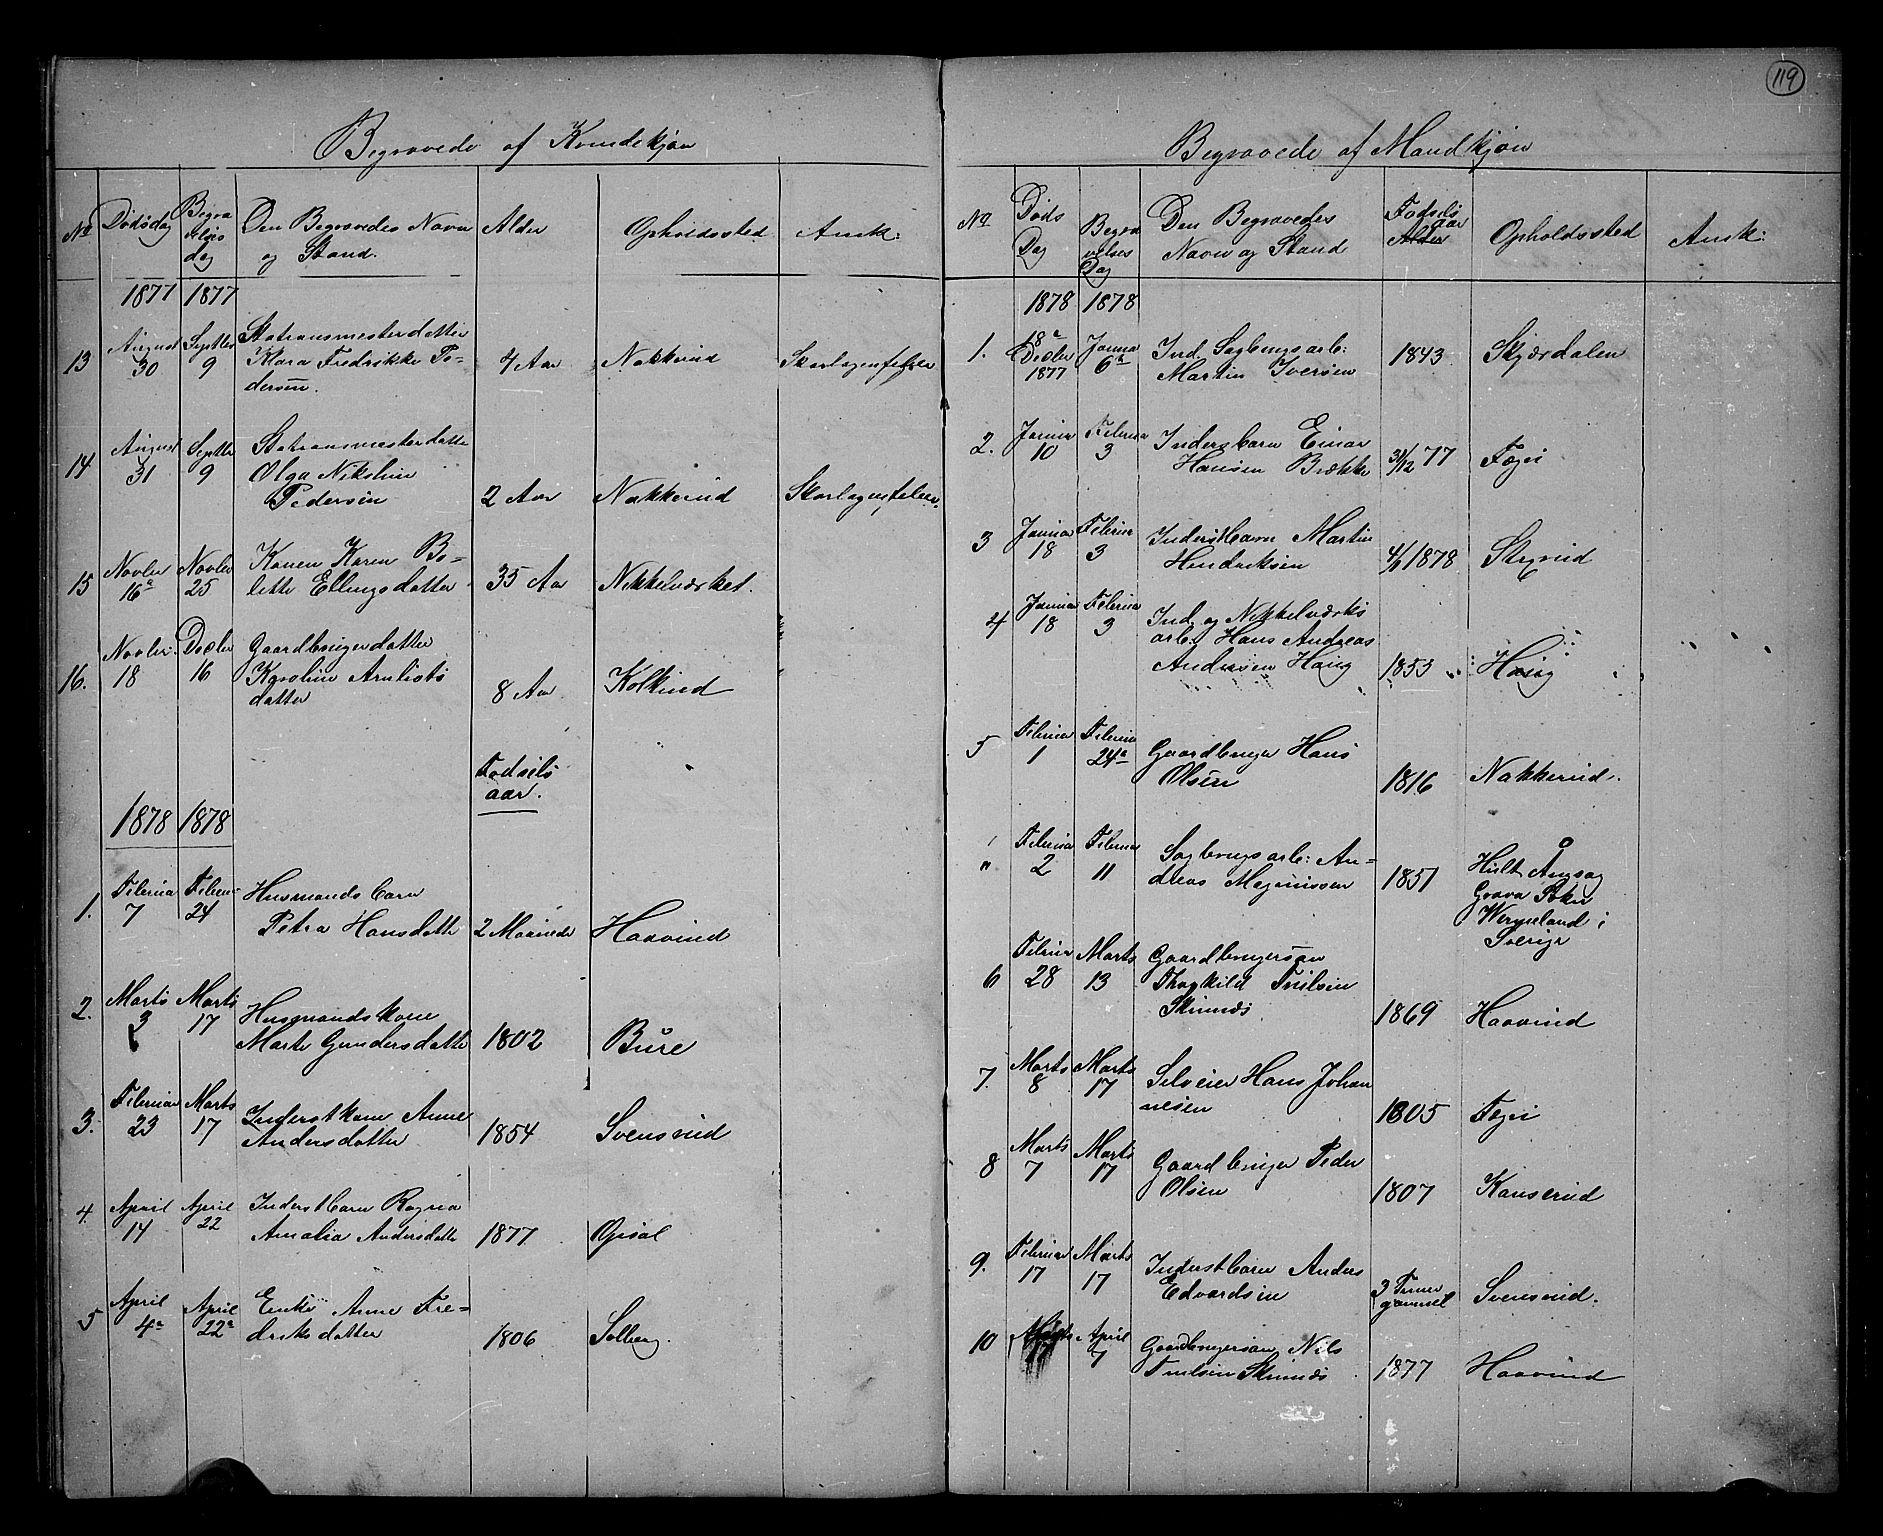 119
Begravede af Kvindekjøn
No Dødsdag Begravelsesdag Den Begravedes Navn og Stand. Alder Opholdssted Ank:
1877 1877
13 August 30 Septbr 9 datter Klara Fredrikke Pedersen. 4 Aar Nakkerud Skarlagensfeber
14 August 31 Septbr 9 Olga Nikoline Pedersen 2 Aar Nakkerud Skarlagensfeber.
15 Novbr 16de Novbr 25 Konen Karen Bolette Ellingsdatter 35 Aar Nikkelværket.
16. Novbr. 18 Decbr 16 Gaardbrugerdatter Karoline datter 8 Aar
Fødselsaar.
1878 1878
1. Februar 7 Februar 24 Husmandsbarn Petra Hansdatter 2 Maaneder Haavrud
2. Marts 3 Marts 17 Husmandskone Marte Gundersdatter 1802 Bure
3. Februar 23 Marts 17 Inderstkone Anne Andersdatter 1854 Svensrud
4. April 14 April 22 Inderstbarn Ragna Amalia Andersdatter 1877 Opsal
5 April 4de April 22de Enke Anne Fredriksdatter 1806 Solberg.
Begravede af Mandkjøn
No Døds Dag Begravelses Dag Den Begravedes Navn og Stand Fødselsaar Alder Opholdssted Ank:
1878 1878
1. 18de Decbr 1877 Januar 6te Ind. Sagbrugsarb: Martin Iversen 1843 Skjærdalen
2. Januar 10 Februar 3 Inderstbarn Einar Hansen Brække 31/12 77 Fægri
3 Januar 18 Februar 3 Inderstbarn Martin Hendriksen 4/1 1878
4 Januar 18 Februar 3 Ind. og Nikkelværks arb. Hans Andreas Andersen Haug 1853 Haug
5 Februar 1 Februar 24de Gaardbruger Hans Olsen 1816 Nakkerud.
" Februar 2 Februar 11 Sagbrugsarb: Andreas Magnussen 1851 Hult Grava Wermeland i Sverige
6 Februar 28 Marts 13 Gaardbrugersøn Thorkild Trulsen 1869 Haavrud
7. Marts 8 Marts 17 Selveier Hans Johannesen 1805 Fægri
8 Marts 7 Marts 17 Gaardbruger Peder Olsen 1807 Kanserud
9. Februar 17 Marts 17 Inderstbarn Anders Edvardsen 3 Timer gammel Svensrud.
10 Marts 17 April 7 Gaardbrugersøn Nils Trulsen 1877 Haavrud